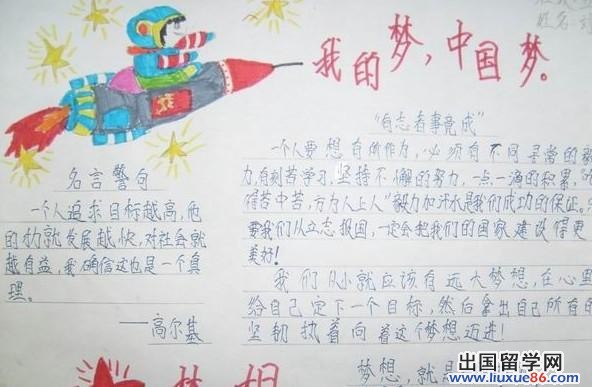 姓名
我的梦，中国梦。
名言警句
一个人追求目标越高，他
的才力就发展越快，对社会就
越有益，我确信这也是一个真
理。
——高尔基
"有志者事竟成"
一个人要想有所作为，必须有不同寻常的毅
力，有刻苦学习，坚持不懈的努力，一点一滴的积累，"吃
得苦中苦，方为人上人"毅力加汗水是我们成功的保证。只
要我们从立志报国，一定会把我们的国家建设得更
美好！
我们从小就应该有远大梦想，在心里
给自己定下一个目标，然后拿出自己所有的
坚韧执着向着这个梦想迈进！
梦想，就是
梦想
出国留学网
www.liuxue86.com